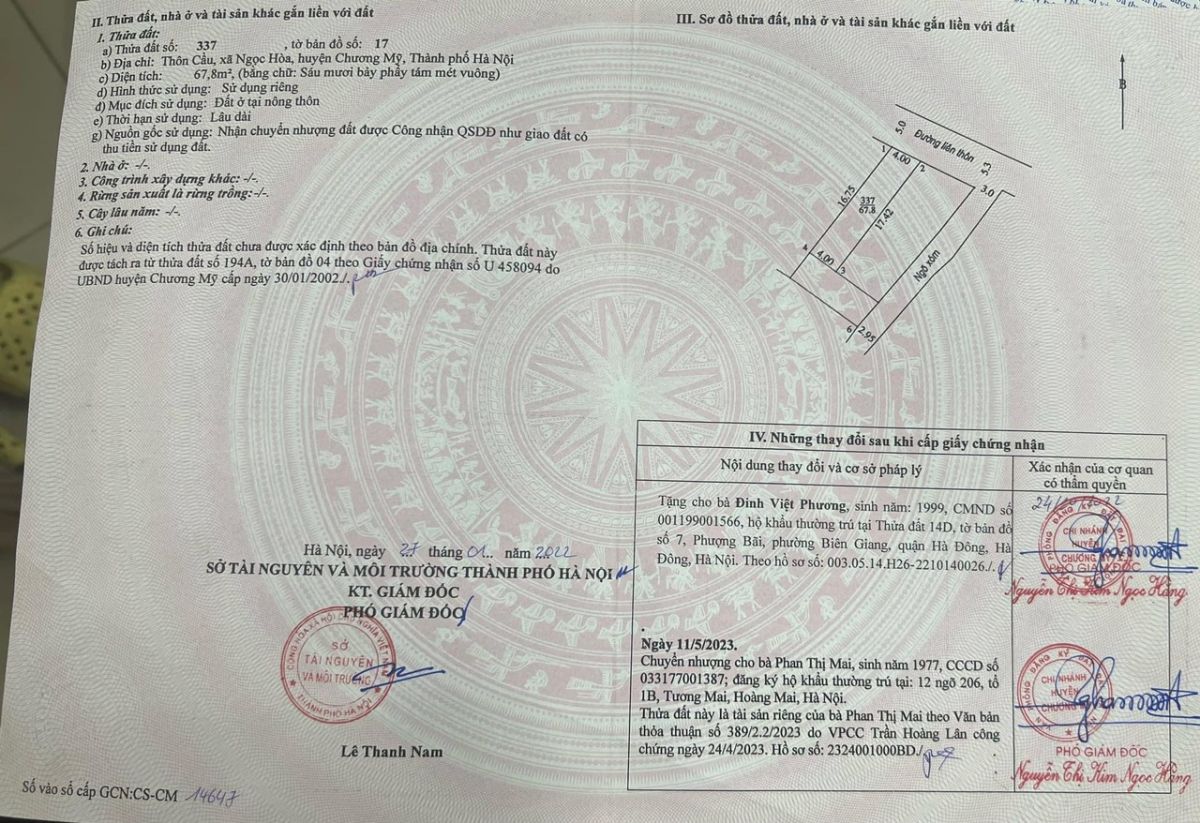 II. Thửa đất, nhà ở và tài sản khác gắn liền với đất
1. Thửa đất:
a) Thửa đất số: 337 , tờ bản đồ số: 17
b) Địa chỉ: Thôn Cầu, xã Ngọc Hòa, huyện Chương Mỹ, Thành phố Hà Nội
c) Diện tích: 67,8m², (bằng chữ: Sáu mươi bảy phẩy tám mét vuông)
d) Hình thức sử dụng: Sử dụng riêng
đ) Mục đích sử dụng: Đất ở tại nông thôn
e) Thời hạn sử dụng: Lâu dài
g) Nguồn gốc sử dụng: Nhận chuyển nhượng đất được Công nhận QSDĐ như giao đất có
thu tiền sử dụng đất.
2. Nhà ở: -/-.
3. Công trình xây dựng khác: -/-.
4. Rừng sản xuất là rừng trồng:-/-.
5. Cây lâu năm: -/-.
6. Ghi chú:
Số hiệu và diện tích thửa đất chưa được xác định theo bản đồ địa chính. Thửa đất này
được tách ra từ thửa đất số 194A, tờ bản đồ 04 theo Giấy chứng nhận số U 458094 do
UBND huyện Chương Mỹ cấp ngày 30/01/2002./.
Hà Nội, ngày 27 tháng 01 năm 2022
SỞ TÀI NGUYÊN VÀ MÔI TRƯỜNG THÀNH PHỐ HÀ NỘI
KT. GIÁM ĐỐC
PHÓ GIÁM ĐỐC
CỘNG HÒA XÃ HỘI CHỦ NGHĨA VIỆT NAM
SỞ
TÀI NGUYÊN
VÀ MÔI TRƯỜNG
THÀNH PHỐ HÀ NỘI
Lê Thanh Nam
Số vào sổ cấp GCN:CS-CM 14647
III. Sơ đồ thửa đất, nhà ở và tài sản khác gắn liền với đất
B
5.0
Đường liên thôn
5.3
1
4.00
2
3.0
16.75
337
67.8
17.42
4
4.00
3
Ngõ xóm
6
2.95
IV. Những thay đổi sau khi cấp giấy chứng nhận
Nội dung thay đổi và cơ sở pháp lý
Xác nhận của cơ quan
có thẩm quyền
Tặng cho bà Đinh Việt Phương, sinh năm: 1999, CMND số
001199001566, hộ khẩu thường trú tại Thửa đất 14D, tờ bản đồ
số 7, Phượng Bãi, phường Biên Giang, quận Hà Đông, Hà
Đông, Hà Nội. Theo hồ sơ số: 003.05.14.H26-2210140026./.
24/10/2022
VĂN PHÒNG ĐĂNG KÝ ĐẤT ĐAI HÀ NỘI
CHI NHÁNH
HUYỆN
CHƯƠNG MỸ
PHÓ GIÁM ĐỐC
Nguyễn Thị Kim Ngọc Hằng
Ngày 11/5/2023.
Chuyển nhượng cho bà Phan Thị Mai, sinh năm 1977, CCCD số
033177001387; đăng ký hộ khẩu thường trú tại: 12 ngõ 206, tổ
1B, Tương Mai, Hoàng Mai, Hà Nội.
Thửa đất này là tài sản riêng của bà Phan Thị Mai theo Văn bản
thỏa thuận số 389/2.2/2023 do VPCC Trần Hoàng Lân công
chứng ngày 24/4/2023. Hồ sơ số: 2324001000BD./
VĂN PHÒNG ĐĂNG KÝ ĐẤT ĐAI HÀ NỘI
CHI NHÁNH
HUYỆN
CHƯƠNG MỸ
PHÓ GIÁM ĐỐC
Nguyễn Thị Kim Ngọc Hằng